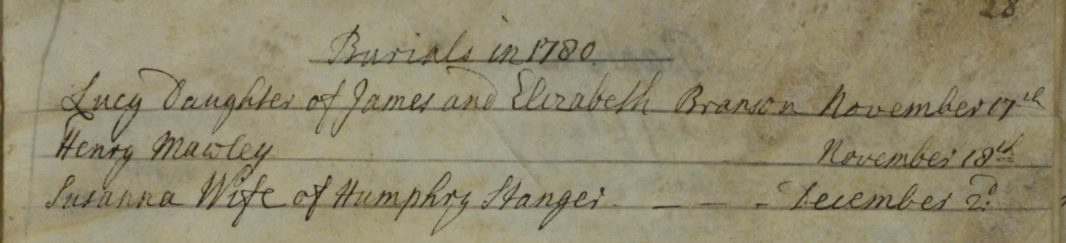 28
Burials in 1780.
Lucy Daughter of James and Elizabeth Branson November 17th
Henry Mawley November 18th
Susanna Wife of Humphry Stanger. - - - December 2d